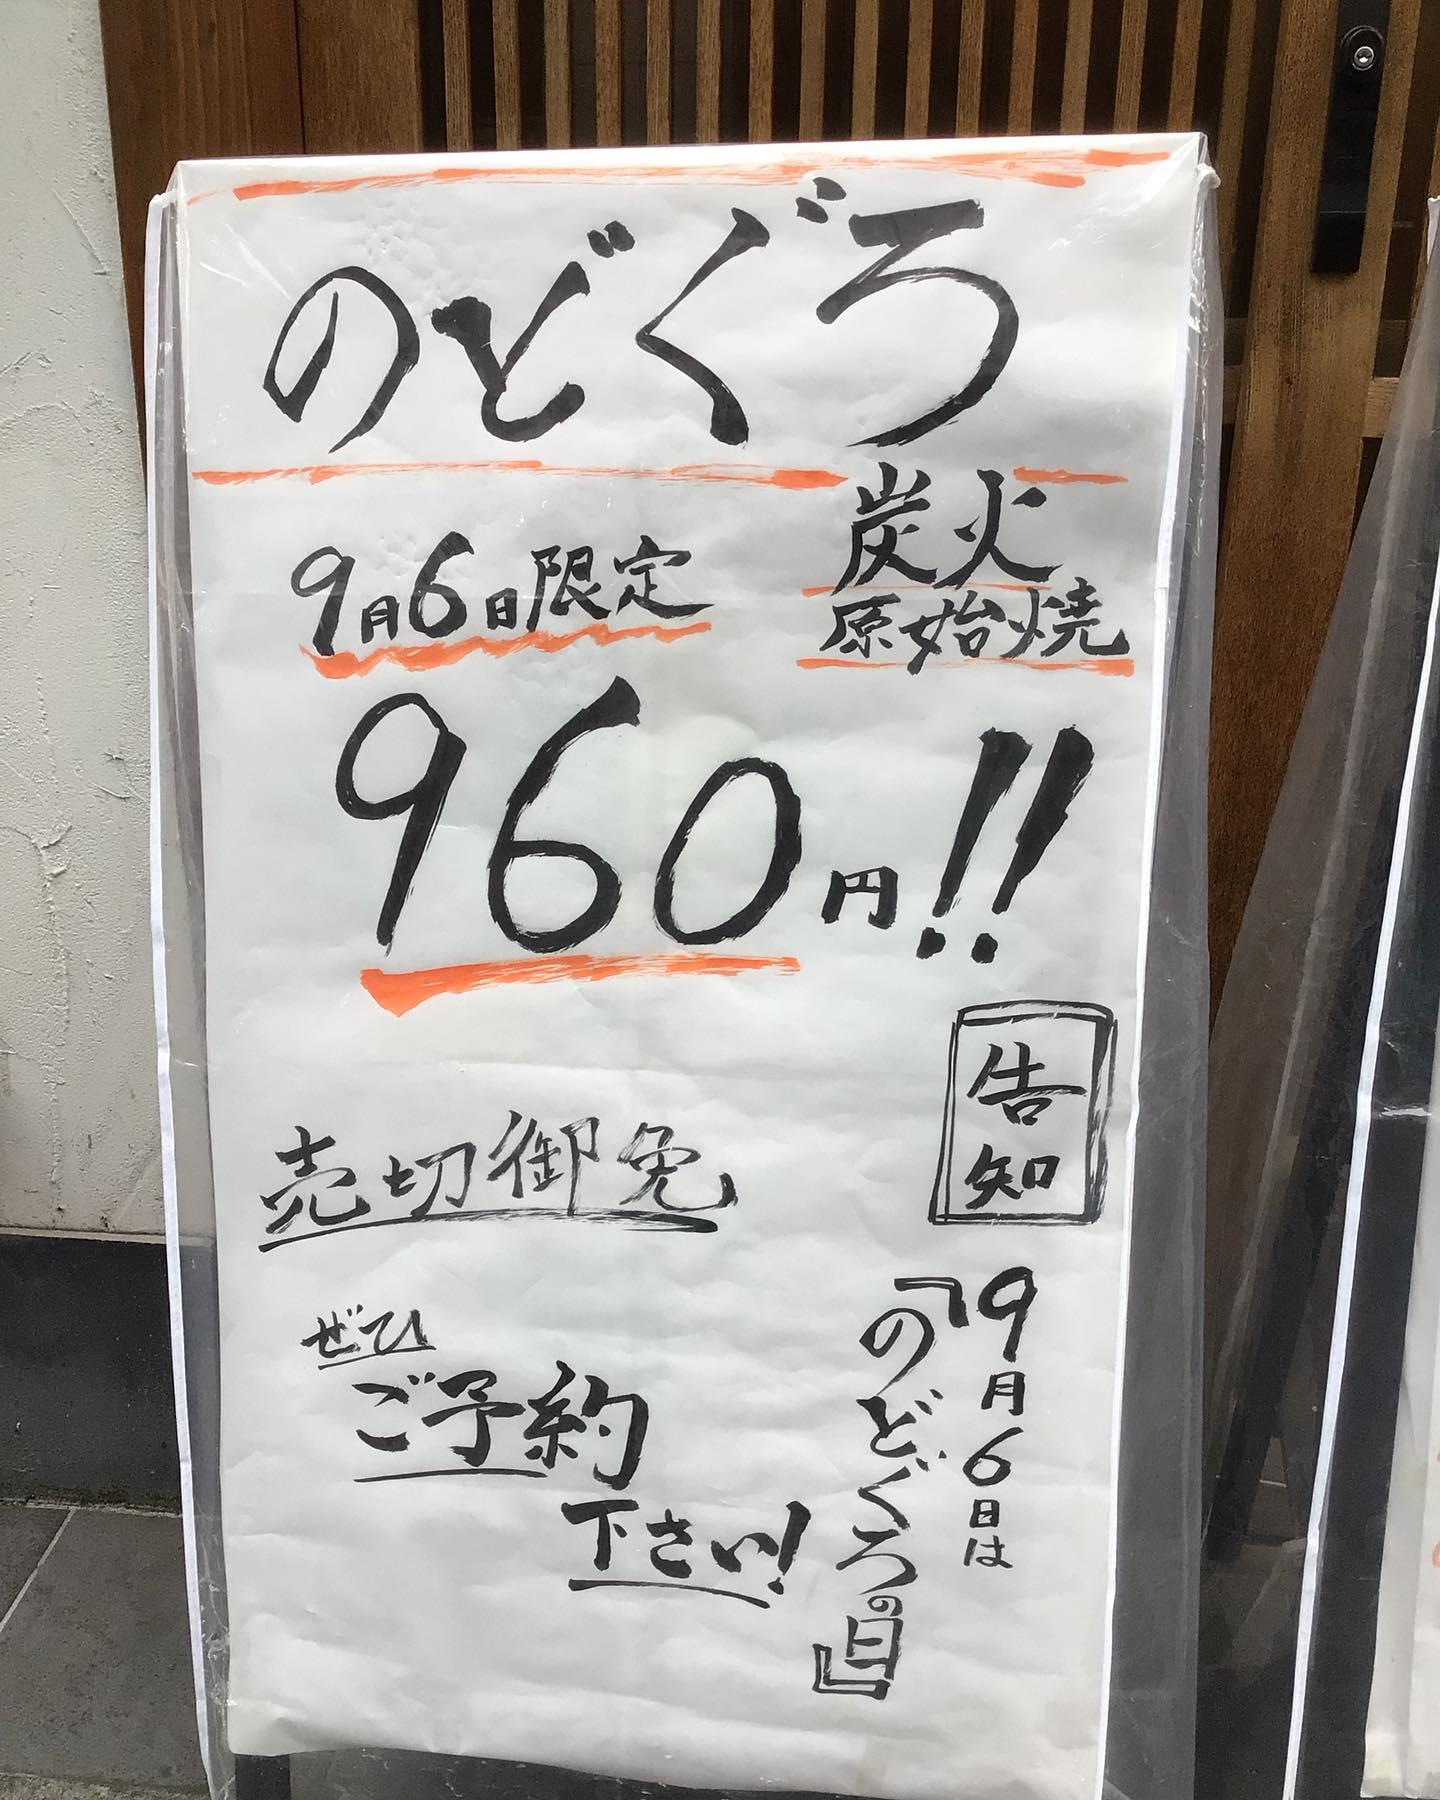 のどぐろ
炭火
原始焼
9月6日限定
960円!!
告知
9月6日は
『のどぐろの日』
売切御免
ぜひ
ご予約
下さい!